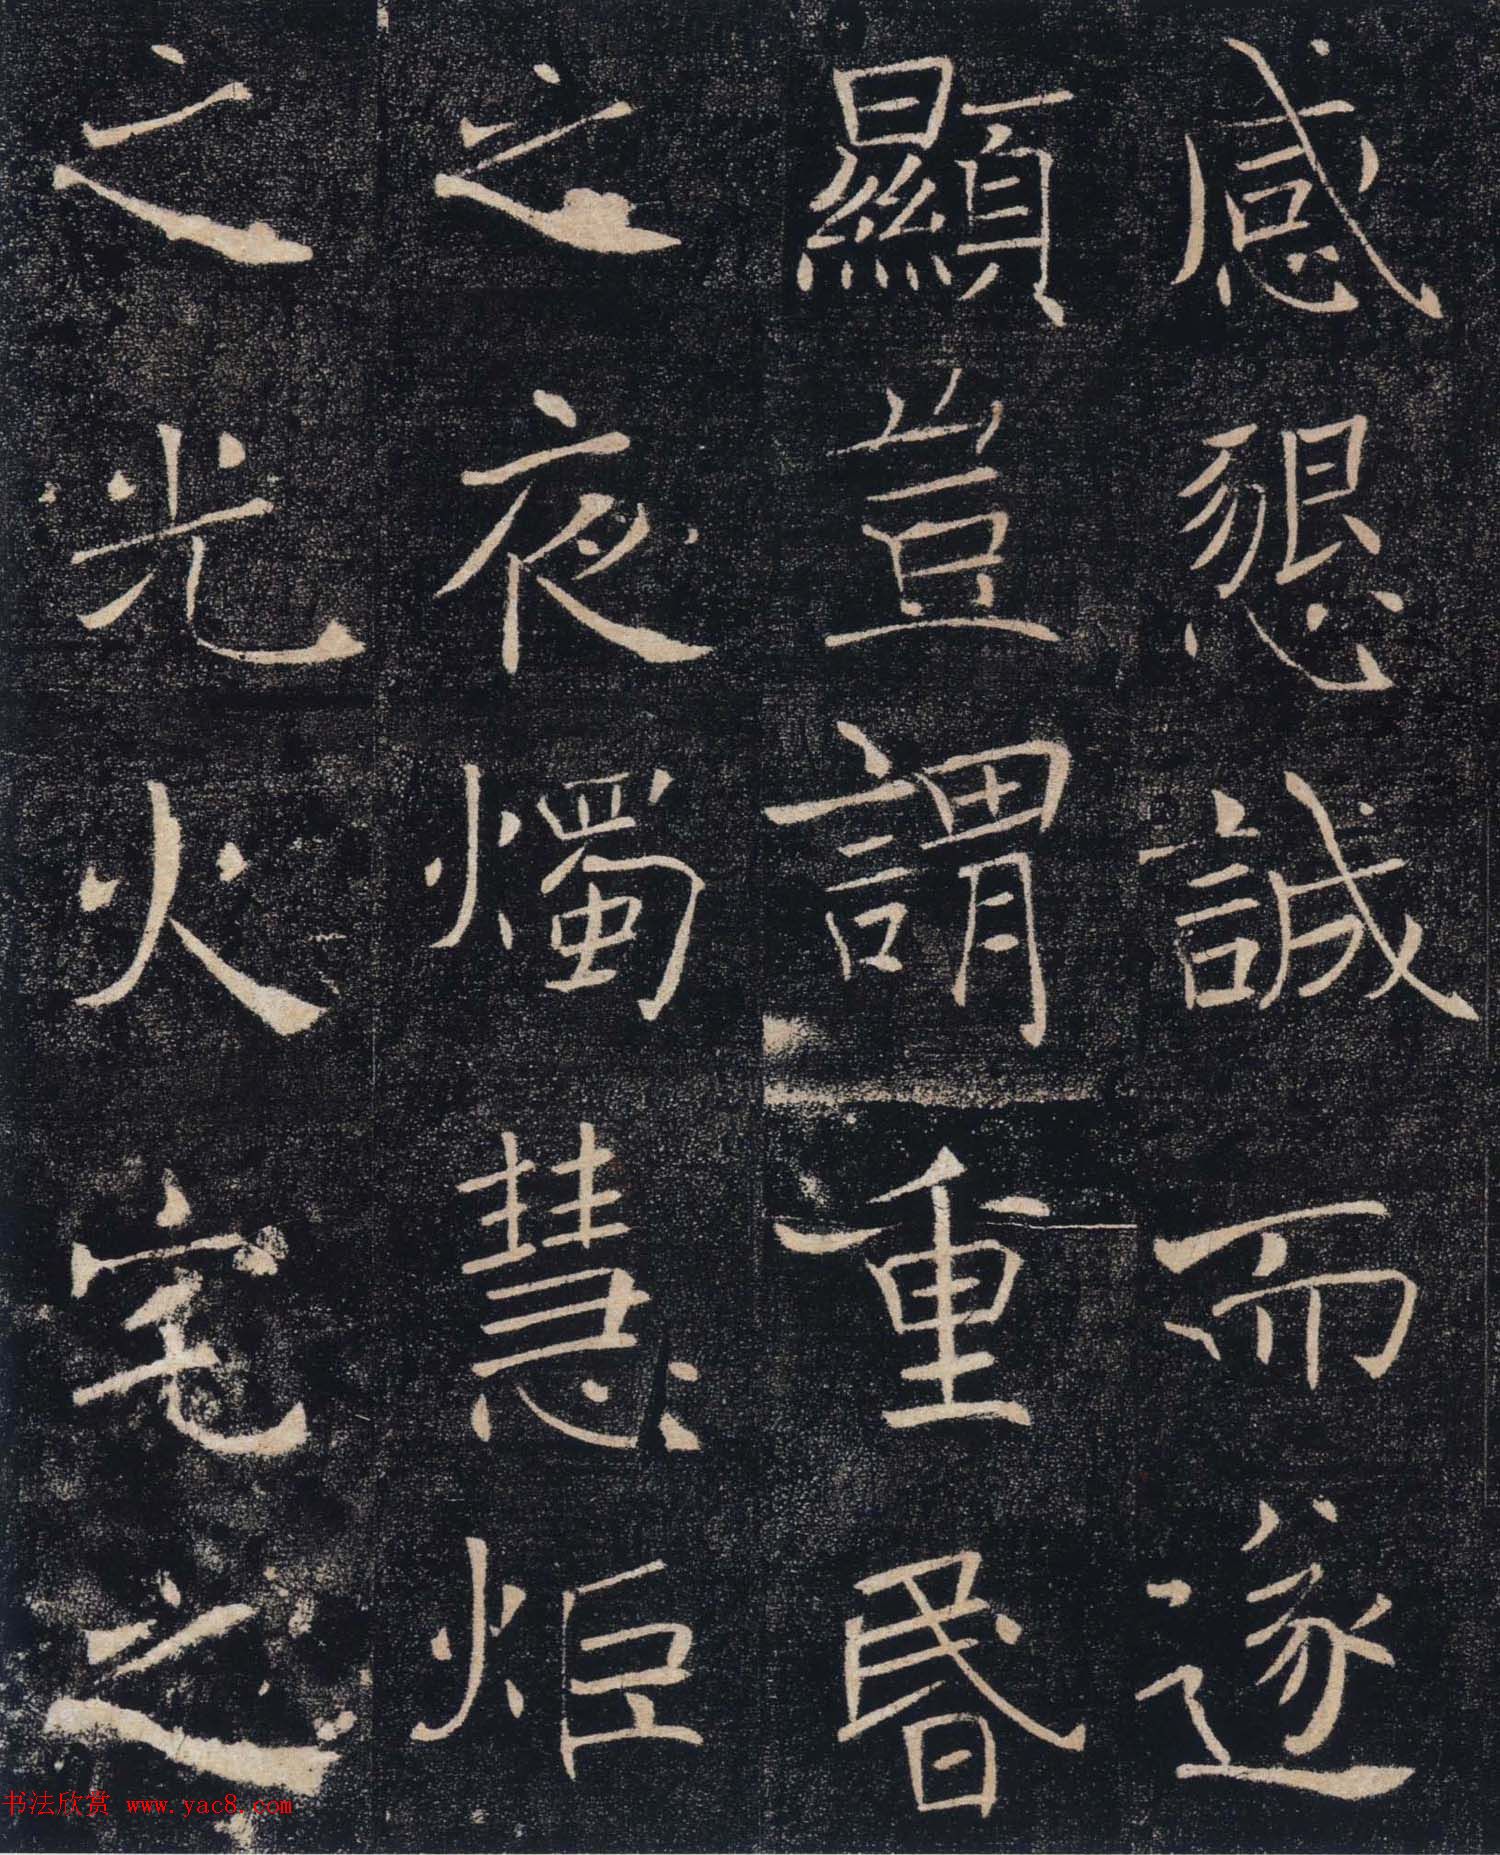 感懇誠而遂
顯豈謂重昬
之夜燭慧炬
之光火宅之
书法欣赏 www.yac8.com